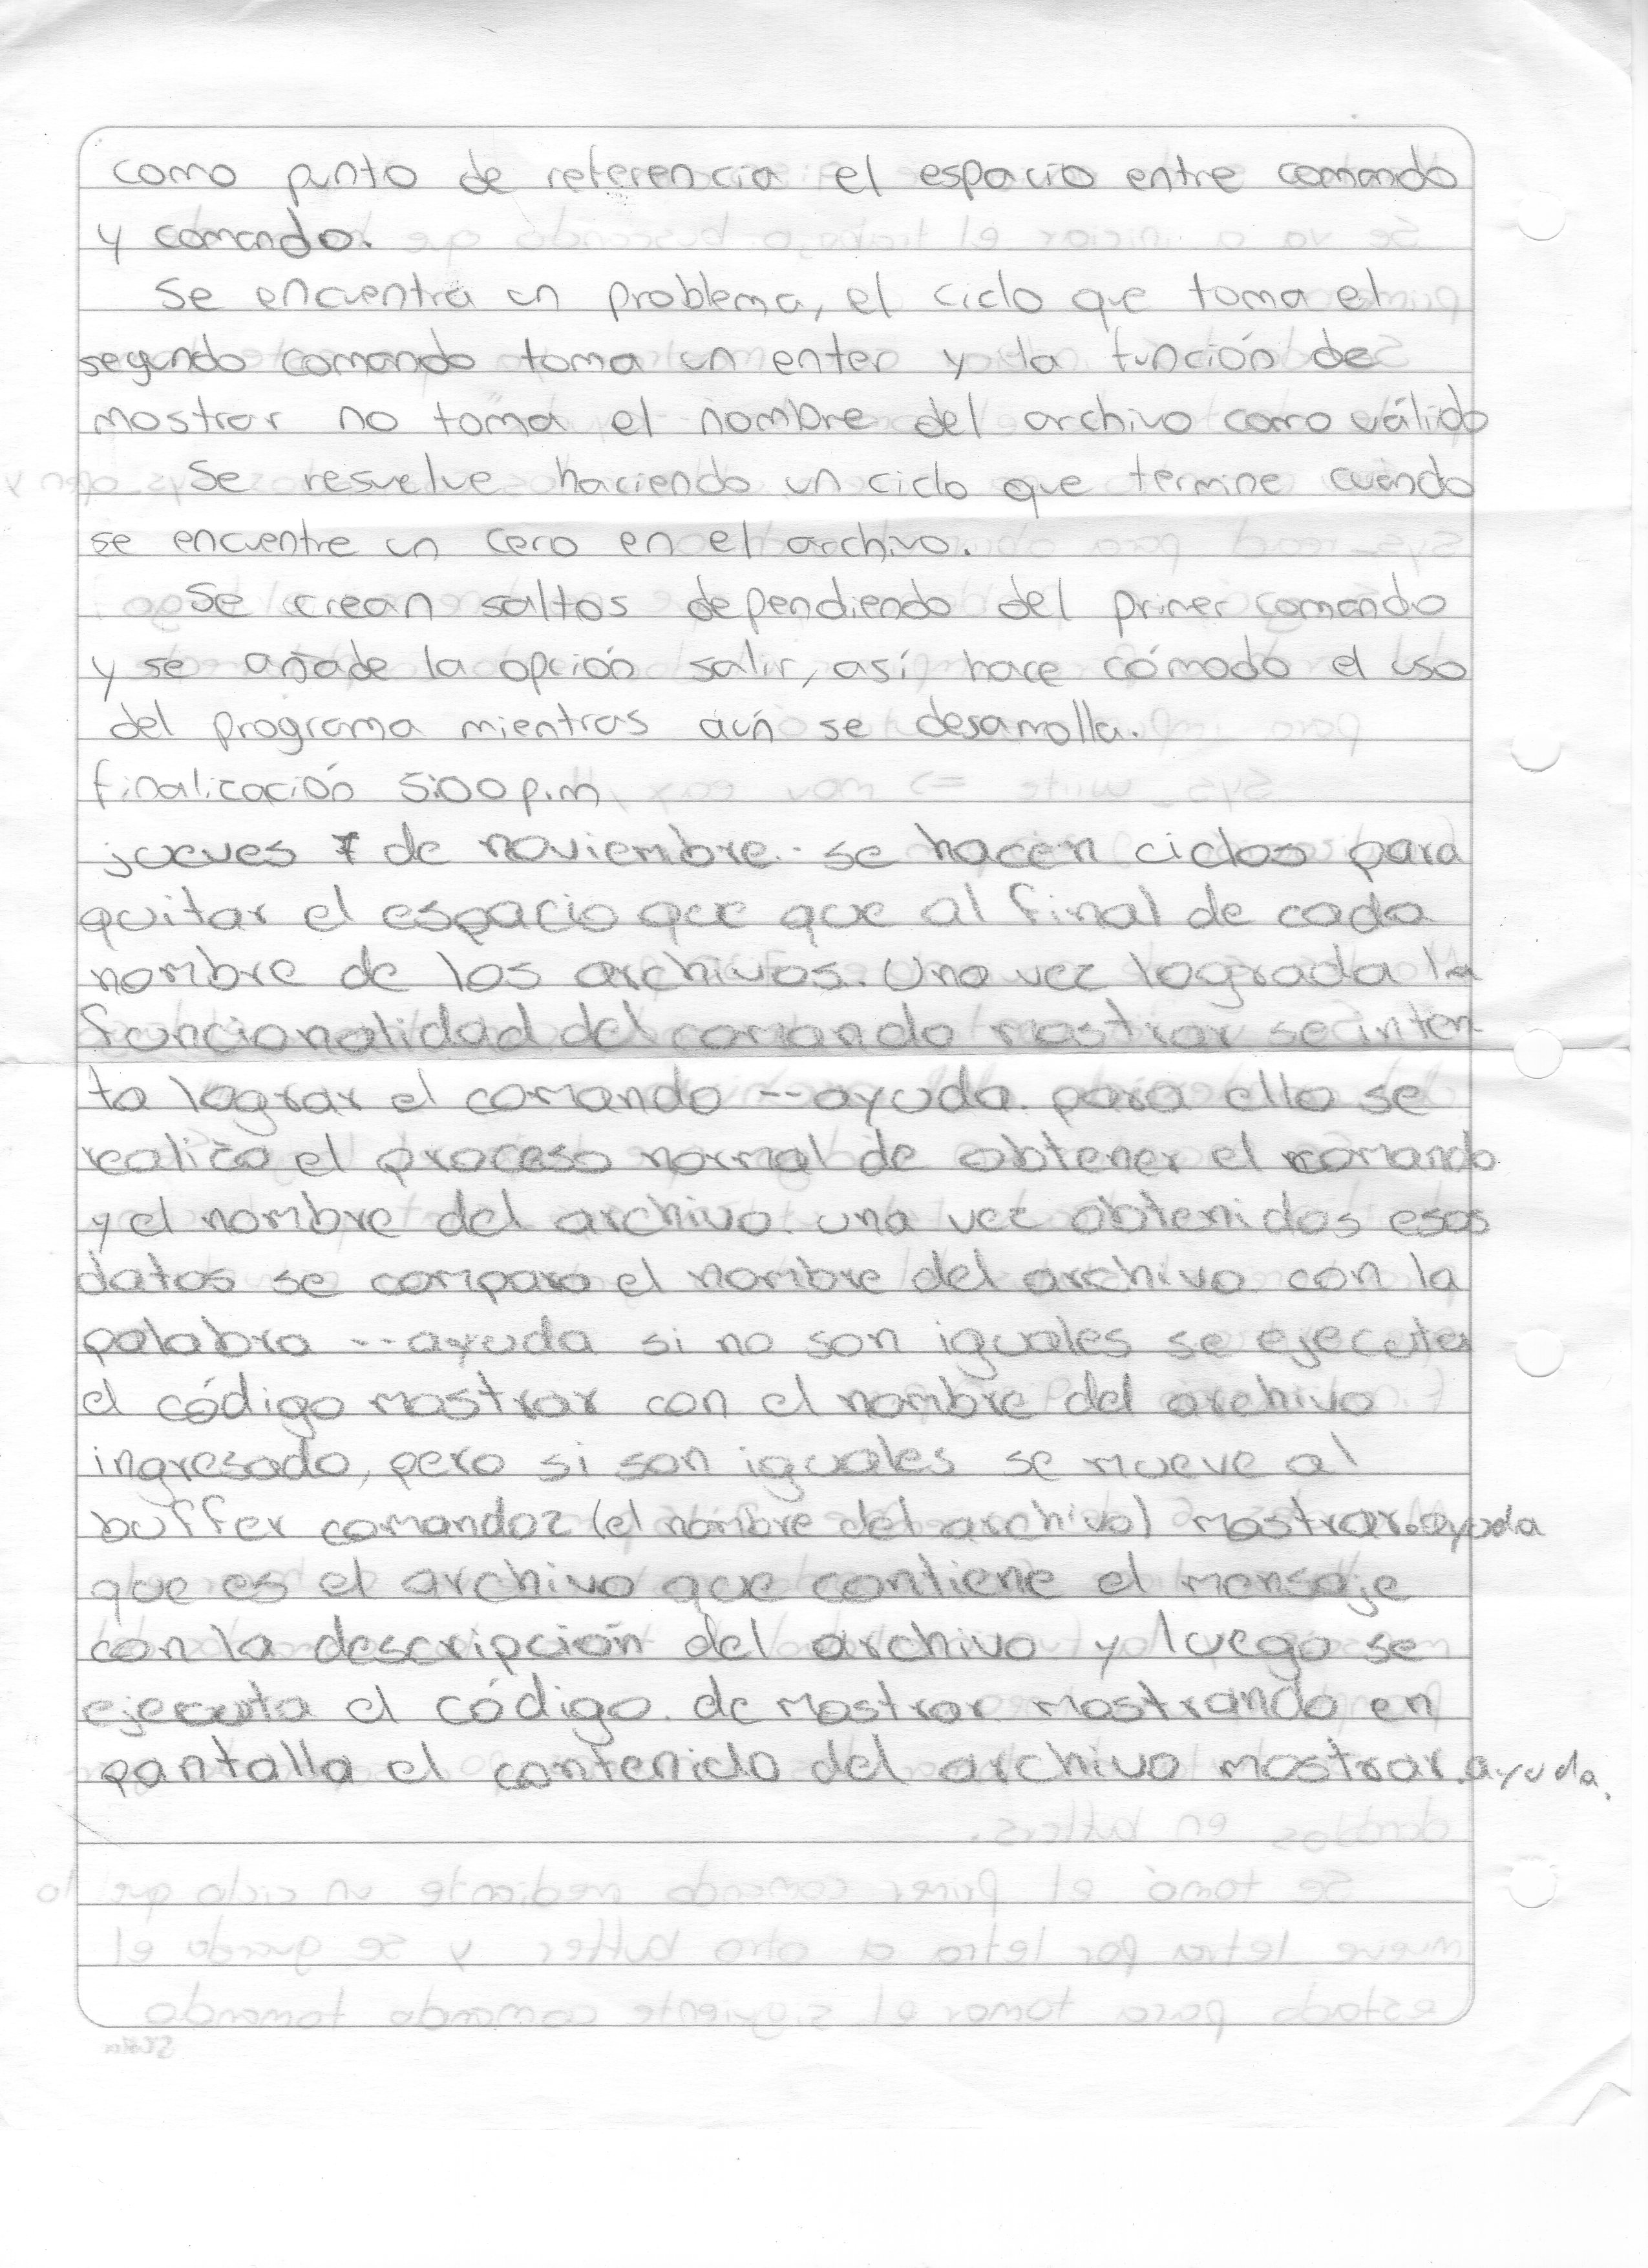 como punto de referencia el espacio entre comando
y comando.
Se encuentra un problema, el ciclo que toma el
segundo comando toma un enter y la función de
mostrar no toma el nombre del archivo como válido
Se resuelve haciendo un ciclo que termine cuando
se encuentre un cero en el archivo.
Se crean saltos dependiendo del primer comando
y se añade la opción salir, así hace cómodo el uso
del programa mientras aún se desarrolla.
finalización 5:00 p.m
jueves 7 de noviembre. se hacen ciclos para
quitar el espacio que que al final de cada
nombre de los archivos. Una vez lograda la
funcionalidad del comando mostrar se inten-
ta lograr el comando --ayuda. para ello se
realiza el proceso normal de obtener el comando
y el nombre del archivo. una vez obtenidos esos
datos se compara el nombre del archivo con la
palabra --ayuda si no son iguales se ejecuta
el código mostrar con el nombre del archivo
ingresado, pero si son iguales se mueve al
buffer comando2 (el nombre del archivo) mostrar.ayuda
que es el archivo que contiene el mensaje
con la descripción del archivo y luego se
ejecuta el código de mostrar mostrando en
pantalla el contenido del archivo mostrar.ayuda.